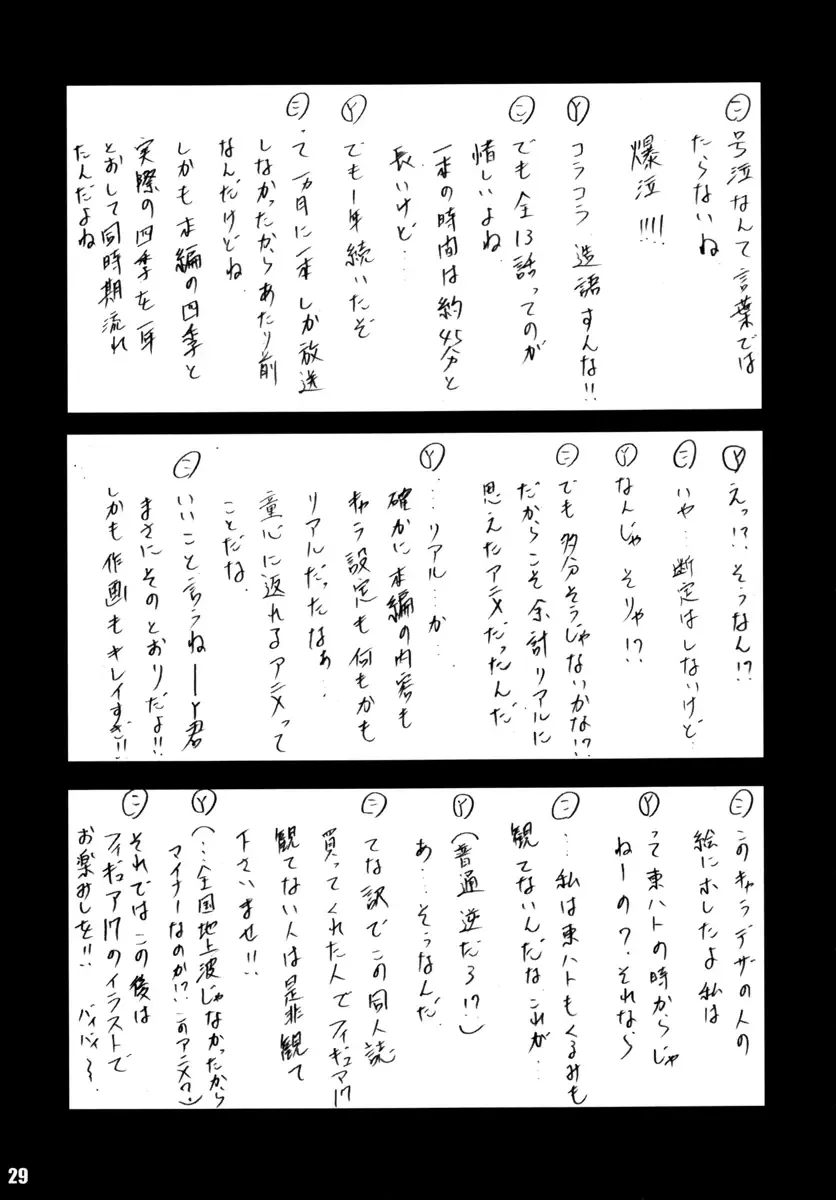 ㊁号泣なんて言葉では
たらないね
爆泣!!!!
Ⓨコラコラ造語すんな!!
㊁でも全13話ってのが
惜しいよね
一本の時間は約45分と
長いけど…
Ⓨでも1年続いたぞ
㊁って一ヵ月に一本しか放送
しなかったからあたり前
なんだけどね
しかも本編の四季と
実際の四季を一年
とおして同時期流れ
たんだよね
Ⓨえっ!?そうなん!?
㊁いや…断定はしないけど…
Ⓨなんじゃそりゃ!?
㊁でも多分そうじゃないかな!?
だからこそ余計リアルに
思えたアニメだったんだ
Ⓨ…リアル…か
確かに本編の内容も
キャラ設定も何もかも
リアルだったなぁ…
童心に返れるアニメって
ことだな
㊁いいこと言うねーY君
まさにそのとおりだよ!!
しかも作画もキレイすぎ!!
㊁このキャラデザの人の
絵にホレたよ私は
Ⓨって東ハトの時からじゃ
ねーの?それなら
㊁…私は東ハトもくるみも
観てないんだなこれが…
Ⓨ(普通逆だろ!?)
あ…そうなんだ
㊁てな訳でこの同人誌
買ってくれた人でフィギュア17
観てない人は是非観て
下さいませ!!
Ⓨ(…全国地上波じゃなかったから
マイナーなのか!?このアニメ?)
㊁それではこの後は
フィギュア17のイラストで
お楽みしを!! バイバイ〜
29